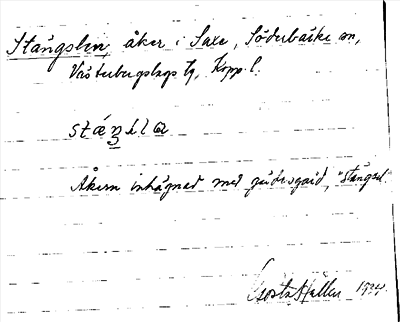 Stängslen, åker i Saxe, Söderbärke sn,
Västerbergslags tg, Kopp. l.
stǽŋslα
Åkern inhägnad med gärdesgård, "stängsel".
Gösta Hallen 1934.